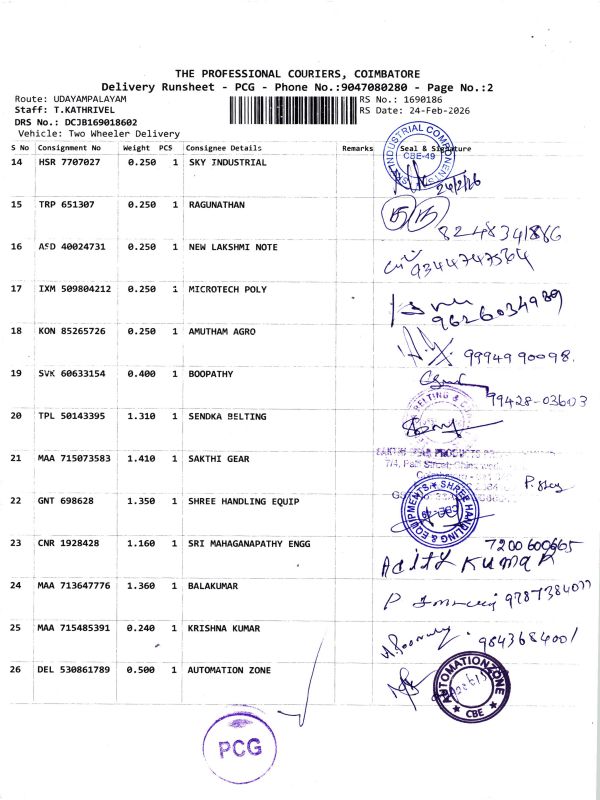 THE PROFESSIONAL COURIERS, COIMBATORE
Delivery Runsheet - PCG - Phone No.:9047080280 - Page No.:2
Route: UDAYAMPALAYAM
Staff: T.KATHRIVEL
DRS No.: DCJB169018602
Vehicle: Two Wheeler Delivery
RS No.: 1690186
RS Date: 24-Feb-2026
S No Consignment No Weight PCS Consignee Details Remarks Seal & Signature
14 HSR 7707027 0.250 1 SKY INDUSTRIAL
SKY INDUSTRIAL COMPONENTS
CBE-49
24/2/26
15 TRP 651307 0.250 1 RAGUNATHAN
8248341886
16 ASD 40024731 0.250 1 NEW LAKSHMI NOTE
9344747564
17 IXM 509804212 0.250 1 MICROTECH POLY
9626034989
18 KON 85265726 0.250 1 AMUTHAM AGRO
9994990098.
19 SVK 60633154 0.400 1 BOOPATHY
99428-03603
20 TPL 50143395 1.310 1 SENDKA BELTING
BELTING &
21 MAA 715073583 1.410 1 SAKTHI GEAR
SAKTHI GEAR PRODUCTS
7/4, Street,
22 GNT 698628 1.350 1 SHREE HANDLING EQUIP
SHREE HANDLING & EQUIPMENTS
CBE-49
23 CNR 1928428 1.160 1 SRI MAHAGANAPATHY ENGG
7200600665
Adity Kumar
24 MAA 713647776 1.360 1 BALAKUMAR
9787384077
25 MAA 715485391 0.240 1 KRISHNA KUMAR
9843684001
26 DEL 530861789 0.500 1 AUTOMATION ZONE
AUTOMATIONZONE
CBE
PCG